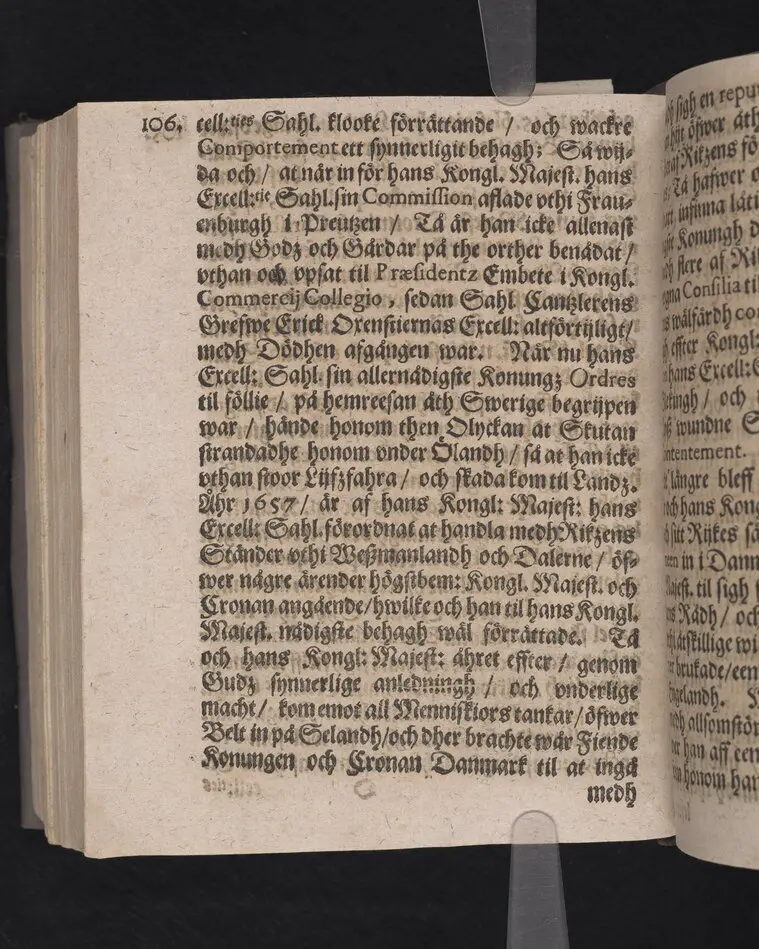 106.
cell:ties Sahl. klooke förrättande / och wackre
Comportement ett synnerligit behagh; Så wij-
da och / at när in för hans Kongl. Majest. hans
Excell:tie Sahl. sin Commission aflade vthi Frau-
enburgh i Preutzen / Tå är han icke allenast
medh Godz och Gårdar på the orther benådat /
vthan och vpsat til Præsidentz Embete i Kongl.
Commercij Collegio, sedan Sahl Cantzlerens
Grefwe Erick Oxenstiernas Excell: altförtijligt /
medh Dödhen afgången war. När nu hans
Excell: Sahl. sin allernådigste Konungz Ordres
til föllie / på hemreesan åth Swerige begrijpen
war / hände honom then Olyckan at Skutan
strandadhe honom vnder Ölandh / så at han icke
vthan stoor Lijfzfahra / och skada kom til Landz.
Åhr 1657 / är af hans Kongl: Majest: hans
Excell: Sahl. förordnat at handla medh Rikzens
Ständer vthi Weßmanlandh och Dalerne / öf-
wer någre ärender högstbem: Kongl. Majest. och
Cronan angående / hwilke och han til hans Kongl.
Majest. nådigste behagh wäl förrättade. Tå
och hans Kongl: Majest: åhret effter / genom
Gudz synnerlige anledningh / och vnderlige
macht / kom emot all Menniskiors tankar / öfwer
Belt in på Selandh / och dher brachte wår Fiende
Konungen och Cronan Danmark til at ingå
medh
sigh en repu
öfwer åth
Rikzens fö
Tå hafwer
infinna låti
Konungh
flere af Ri
Consilia ti
wälfärdh co
effter Kongl:
hans Excell:
och
wundne
tentement.
långre bleff
hans Kong
Rijkes så
in i Dann
til sigh
Rådh / och
åtskillige wi
brukade / een
ngelandh.
allsomstör
han aff een
honom han